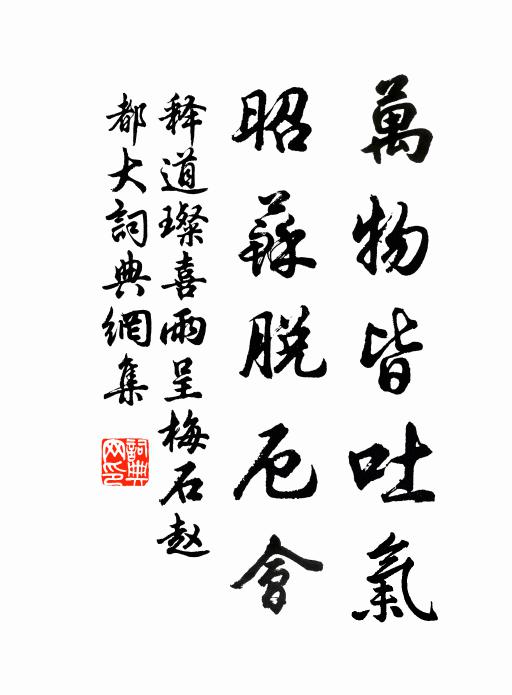 萬物皆吐氣
昭蘇脱厄會
释道璨喜雨呈梅石赵
都大詞典網集
詞典网印